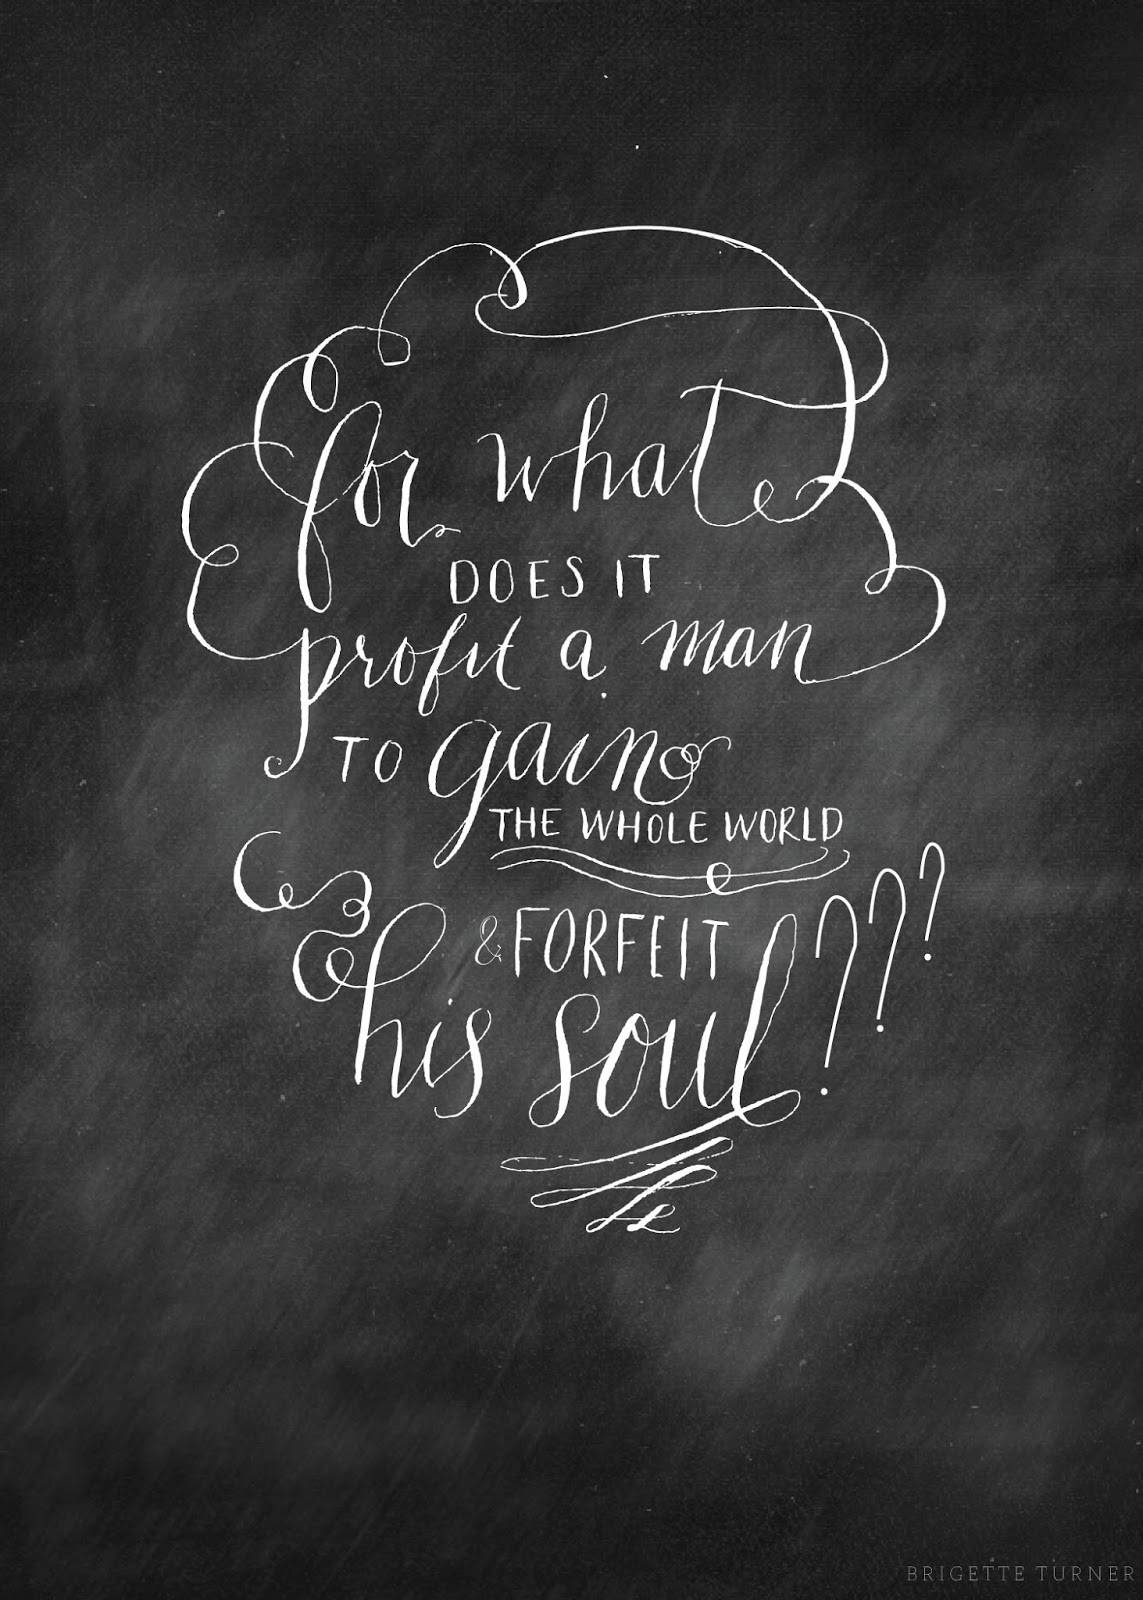 for what
DOES IT
profit a man
TO gain
THE WHOLE WORLD
& FORFEIT
his soul???
BRIGETTE TURNER